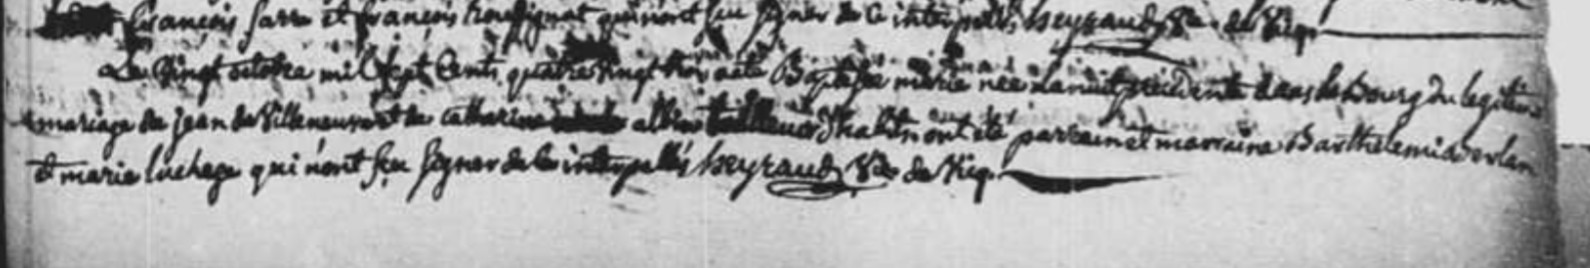 françois sarre et françois qui n'ont sçu signer de ce interpellés heyraud Vic. de Vicq.
Le Vingt octobre mil sept Cents quatre vingt trois a été Baptisée marie née la nuit précédente dans le Bourg du legitime
mariage de jean de Villeneuve et de catherine albin d'habit. ont été parrain et marraine Barthelemi
et marie luchege qui n'ont sçu signer de ce interpellés heyraud Vic. de Vicq.